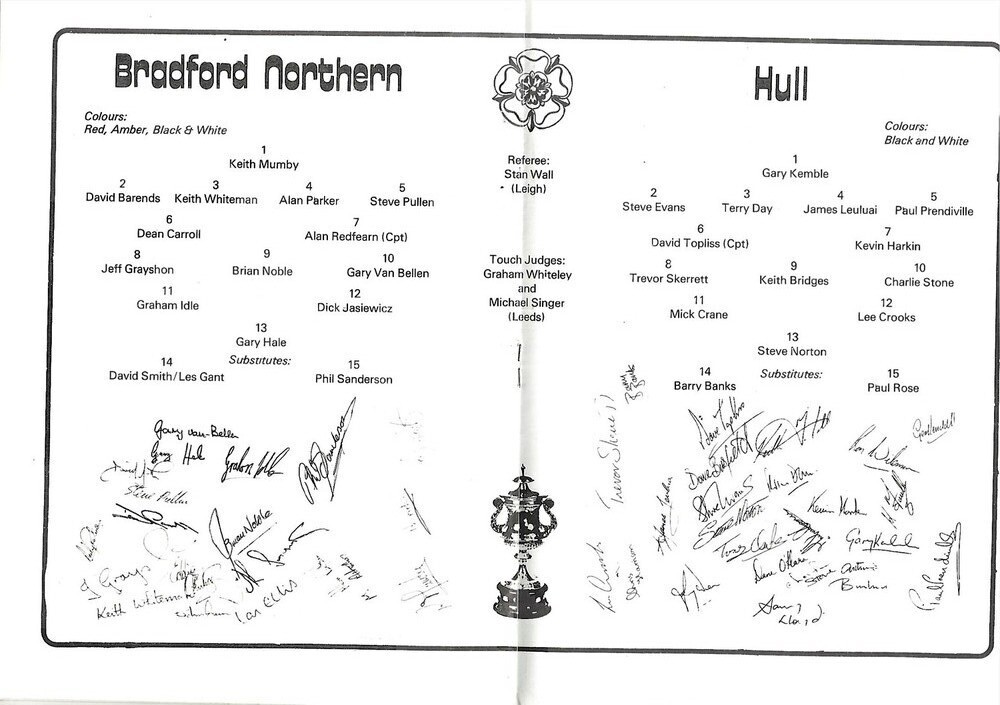 Bradford Northern
Colours:
Red, Amber, Black & White
1
Keith Mumby
2 3 4 5
David Barends Keith Whiteman Alan Parker Steve Pullen
6 7
Dean Carroll Alan Redfearn (Cpt)
8 9 10
Jeff Grayshon Brian Noble Gary Van Bellen
11 12
Graham Idle Dick Jasiewicz
13
Gary Hale
Substitutes:
14 15
David Smith/Les Gant Phil Sanderson
Gary van-Bellen
Gary Hale
Brian Noble
Keith Whiteman
Ian Ellis
Referee:
Stan Wall
(Leigh)
Touch Judges:
Graham Whiteley
and
Michael Singer
(Leeds)
Hull
Colours:
Black and White
1
Gary Kemble
2 3 4 5
Steve Evans Terry Day James Leuluai Paul Prendiville
6 7
David Topliss (Cpt) Kevin Harkin
8 9 10
Trevor Skerrett Keith Bridges Charlie Stone
11 12
Mick Crane Lee Crooks
13
Steve Norton
14 Substitutes: 15
Barry Banks Paul Rose
Barry Banks
Dave Topliss
Steve Evans
Steve Norton
Kevin Harkin
Gary Kemble
Paul Prendiville
Sammy Lloyd